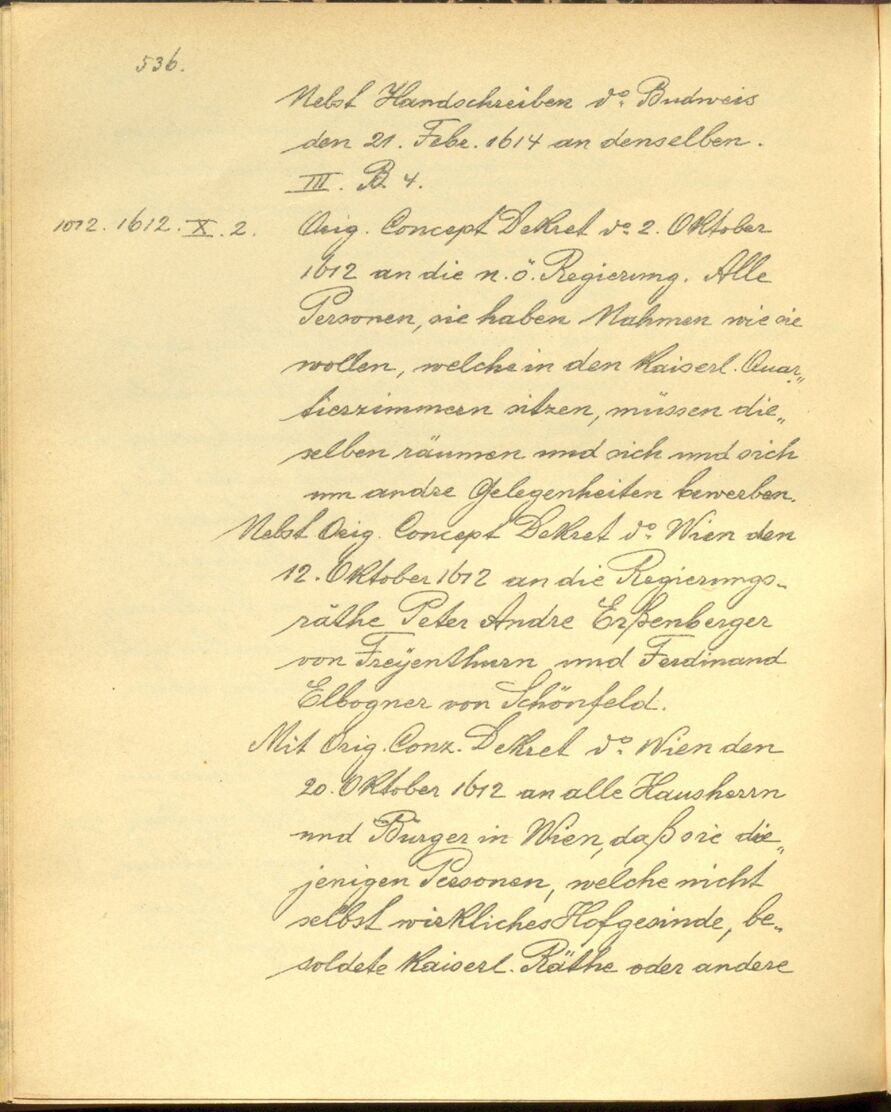 536.
Nebst Handschreiben do. Budweis
den 21. Febr. 1614 an denselben.
III. B. 4.
1012. 1612. X. 2. Orig. Concept Dekret do. 2. Oktober
1612 an die n. ö. Regierung. Alle
Personen, sie haben Nahmen wie sie
wollen, welche in den Kaiserl. Quar„
tierzimmern sitzen, müssen die„
selben räumen und sich und sich
um andre Gelegenheiten bewerben.
Nebst Orig. Concept Dekret do. Wien den
12. Oktober 1612 an die Regierungs-
räthe Peter Andre Erßenberger
von Freÿenthurn und Ferdinand
Elbogner von Schönfeld.
Mit Orig. Conz. Dekret do. Wien den
20. Oktober 1612 an alle Hausherrn
und Bürger in Wien, daß sie die„
jenigen Personen, welche nicht
selbst wirkliches Hofgesinde, be„
soldete Kaiserl. Räthe oder andere